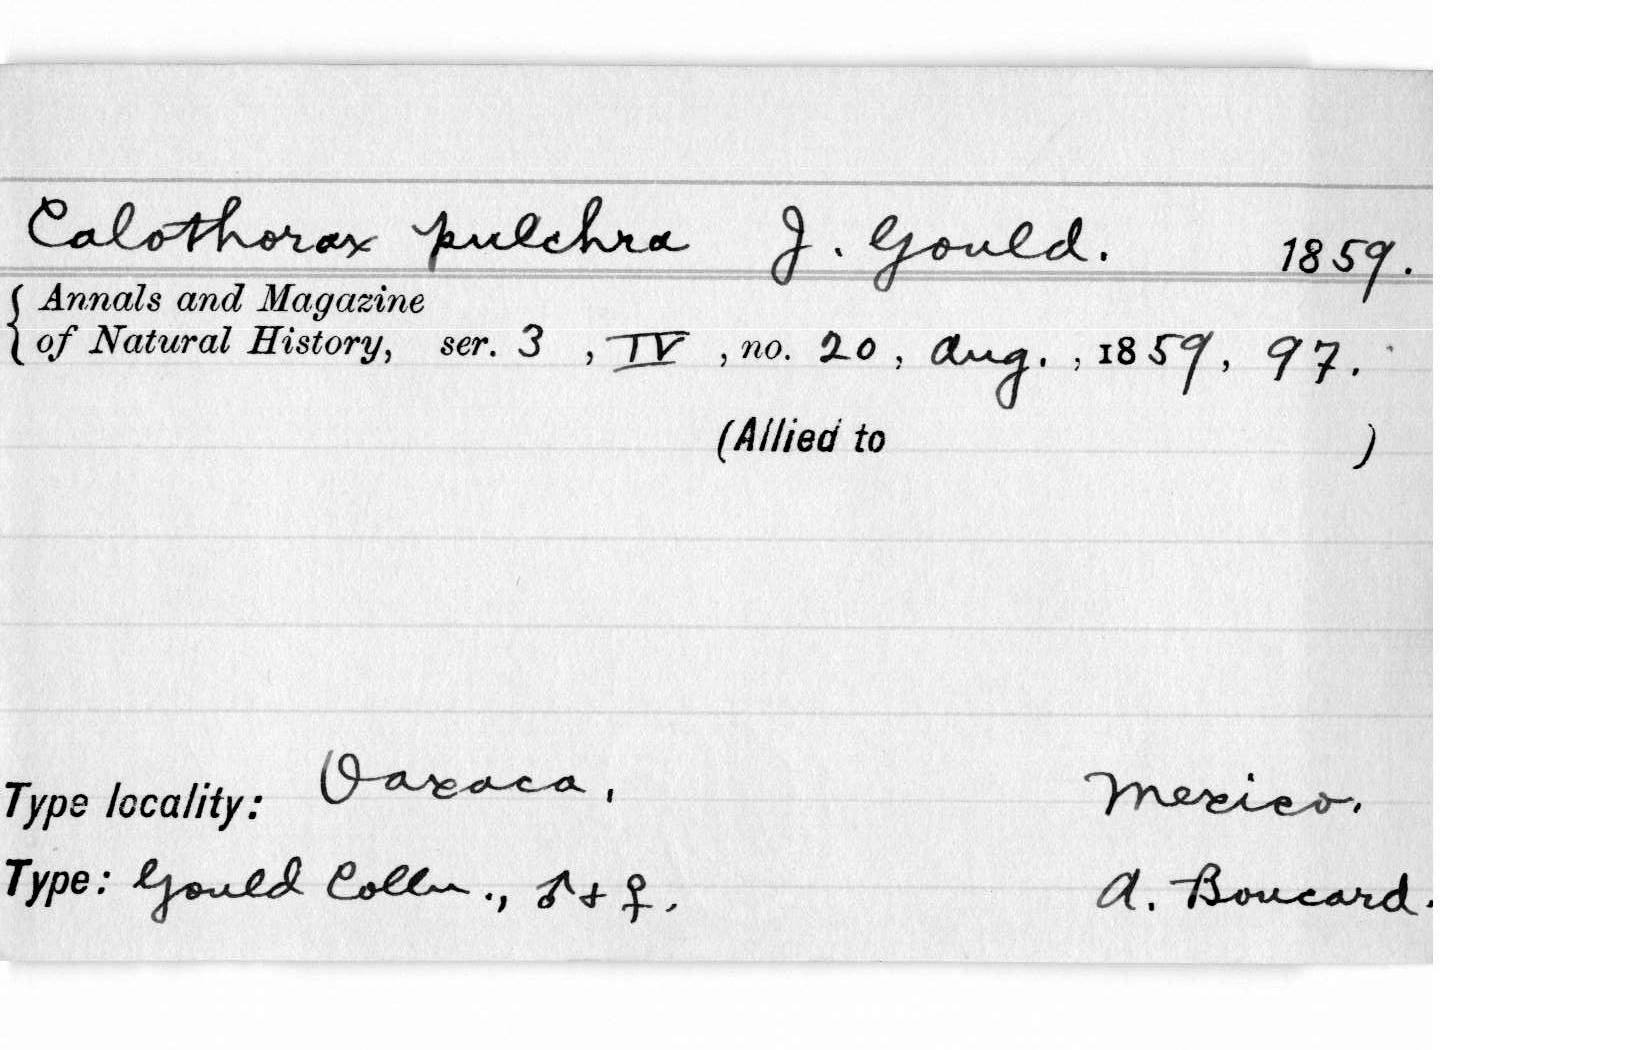 Calothorax pulchra J. Gould. 1859.
Annals and Magazine
of Natural History, ser. 3 , IV , no. 20 , Aug. , 1859, 97.
(Allied to )
Type locality: Oaxaca, Mexico.
Type: Gould Colln., ♂ + ♀. A. Boucard.